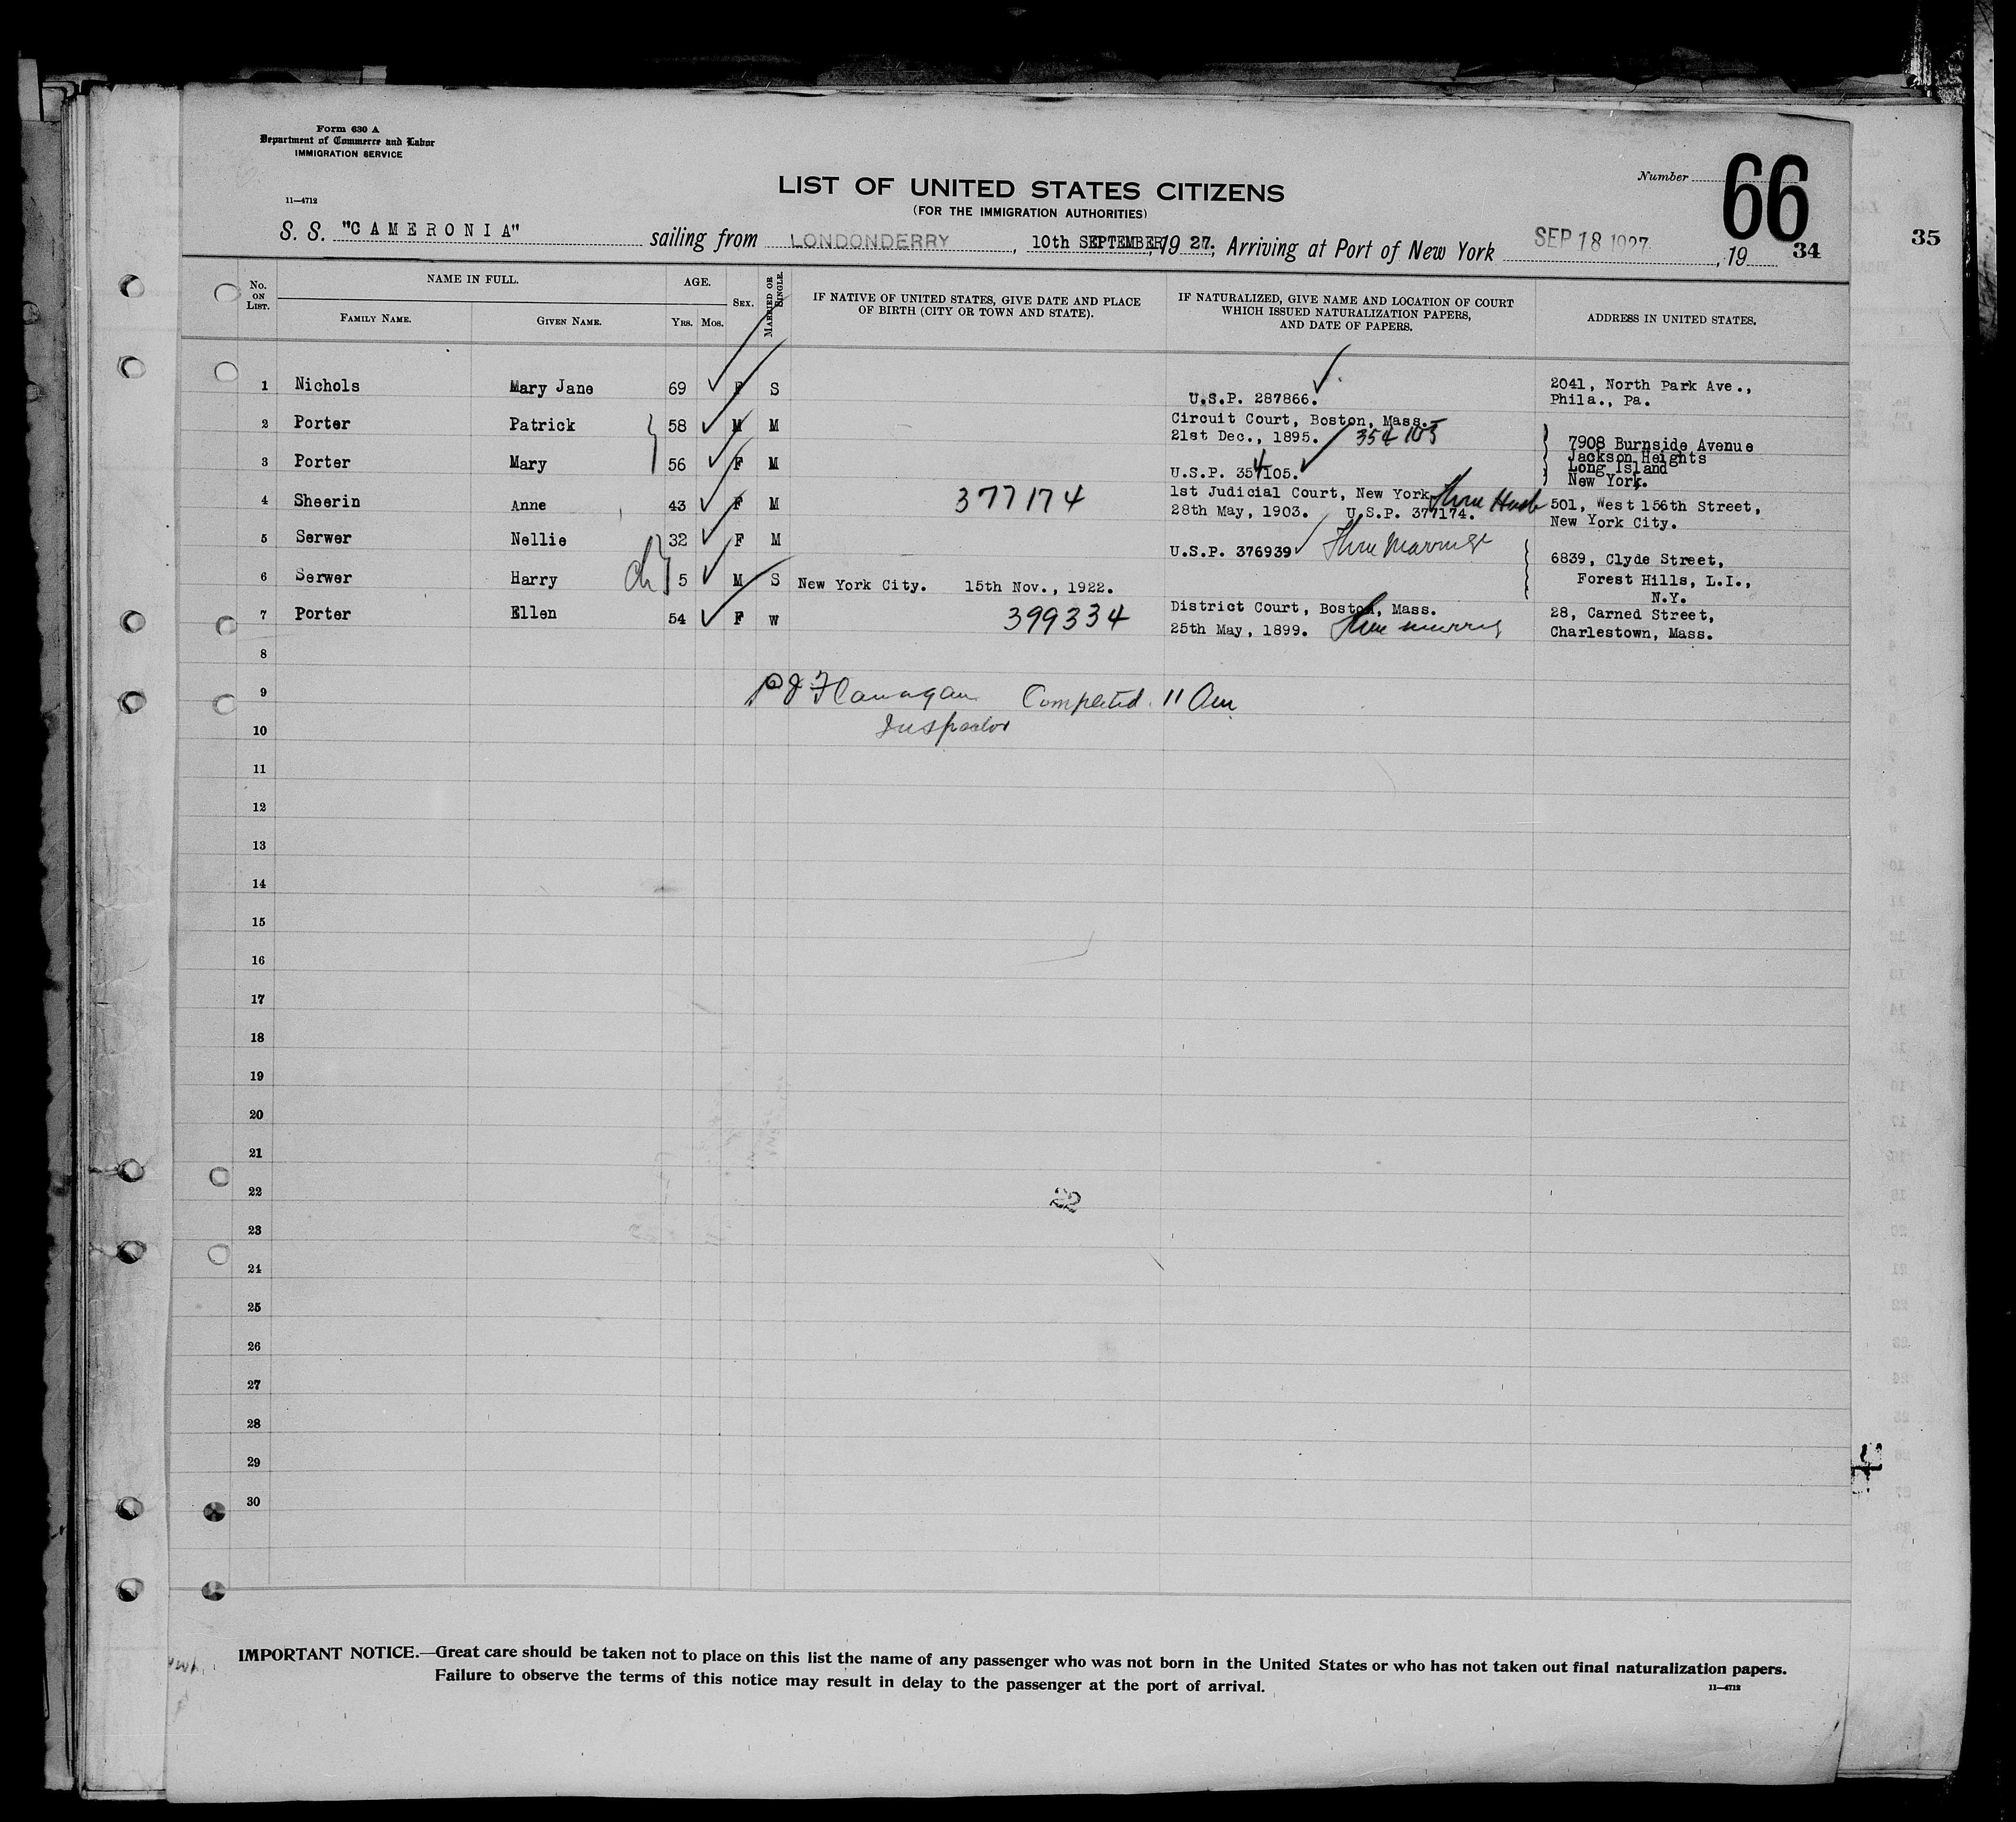 Form 630 A
Department of Commerce and Labor
IMMIGRATION SERVICE
11—4712
LIST OF UNITED STATES CITIZENS
(FOR THE IMMIGRATION AUTHORITIES)
Number 66
34
35
S. S. "CAMERONIA" sailing from LONDONDERRY, 10th SEPTEMBER, 1927, Arriving at Port of New York SEP 18 1927, 19
No. ON LIST.
NAME IN FULL.
FAMILY NAME.
GIVEN NAME.
AGE.
YRS. MOS.
SEX.
MARRIED OR SINGLE.
IF NATIVE OF UNITED STATES, GIVE DATE AND PLACE
OF BIRTH (CITY OR TOWN AND STATE).
IF NATURALIZED, GIVE NAME AND LOCATION OF COURT
WHICH ISSUED NATURALIZATION PAPERS,
AND DATE OF PAPERS.
ADDRESS IN UNITED STATES.
1 Nichols Mary Jane 69 F S U.S.P. 287866. 2041, North Park Ave.,
Phila., Pa.
2 Porter Patrick 58 M M Circuit Court, Boston, Mass.
21st Dec., 1895. 354105
3 Porter Mary 56 F M U.S.P. 354105. 7908 Burnside Avenue
Jackson Heights
Long Island
New York.
4 Sheerin Anne 43 F M 377174 1st Judicial Court, New York Thru Husb
28th May, 1903. U.S.P. 377174. 501, West 156th Street,
New York City.
5 Serwer Nellie 32 F M U.S.P. 376939 Thru Marriage 6839, Clyde Street,
Forest Hills, L.I.,
N.Y.
6 Serwer Harry ch 5 M S New York City. 15th Nov., 1922.
7 Porter Ellen 54 F W 399334 District Court, Boston, Mass.
25th May, 1899. Thru marriag 28, Carned Street,
Charlestown, Mass.
8
9
P J Flanagan Completed 11 Am
Inspector
10
11
12
13
14
15
16
17
18
19
20
21
22
22
23
24
25
26
27
28
29
30
IMPORTANT NOTICE.—Great care should be taken not to place on this list the name of any passenger who was not born in the United States or who has not taken out final naturalization papers.
Failure to observe the terms of this notice may result in delay to the passenger at the port of arrival.
11—4712